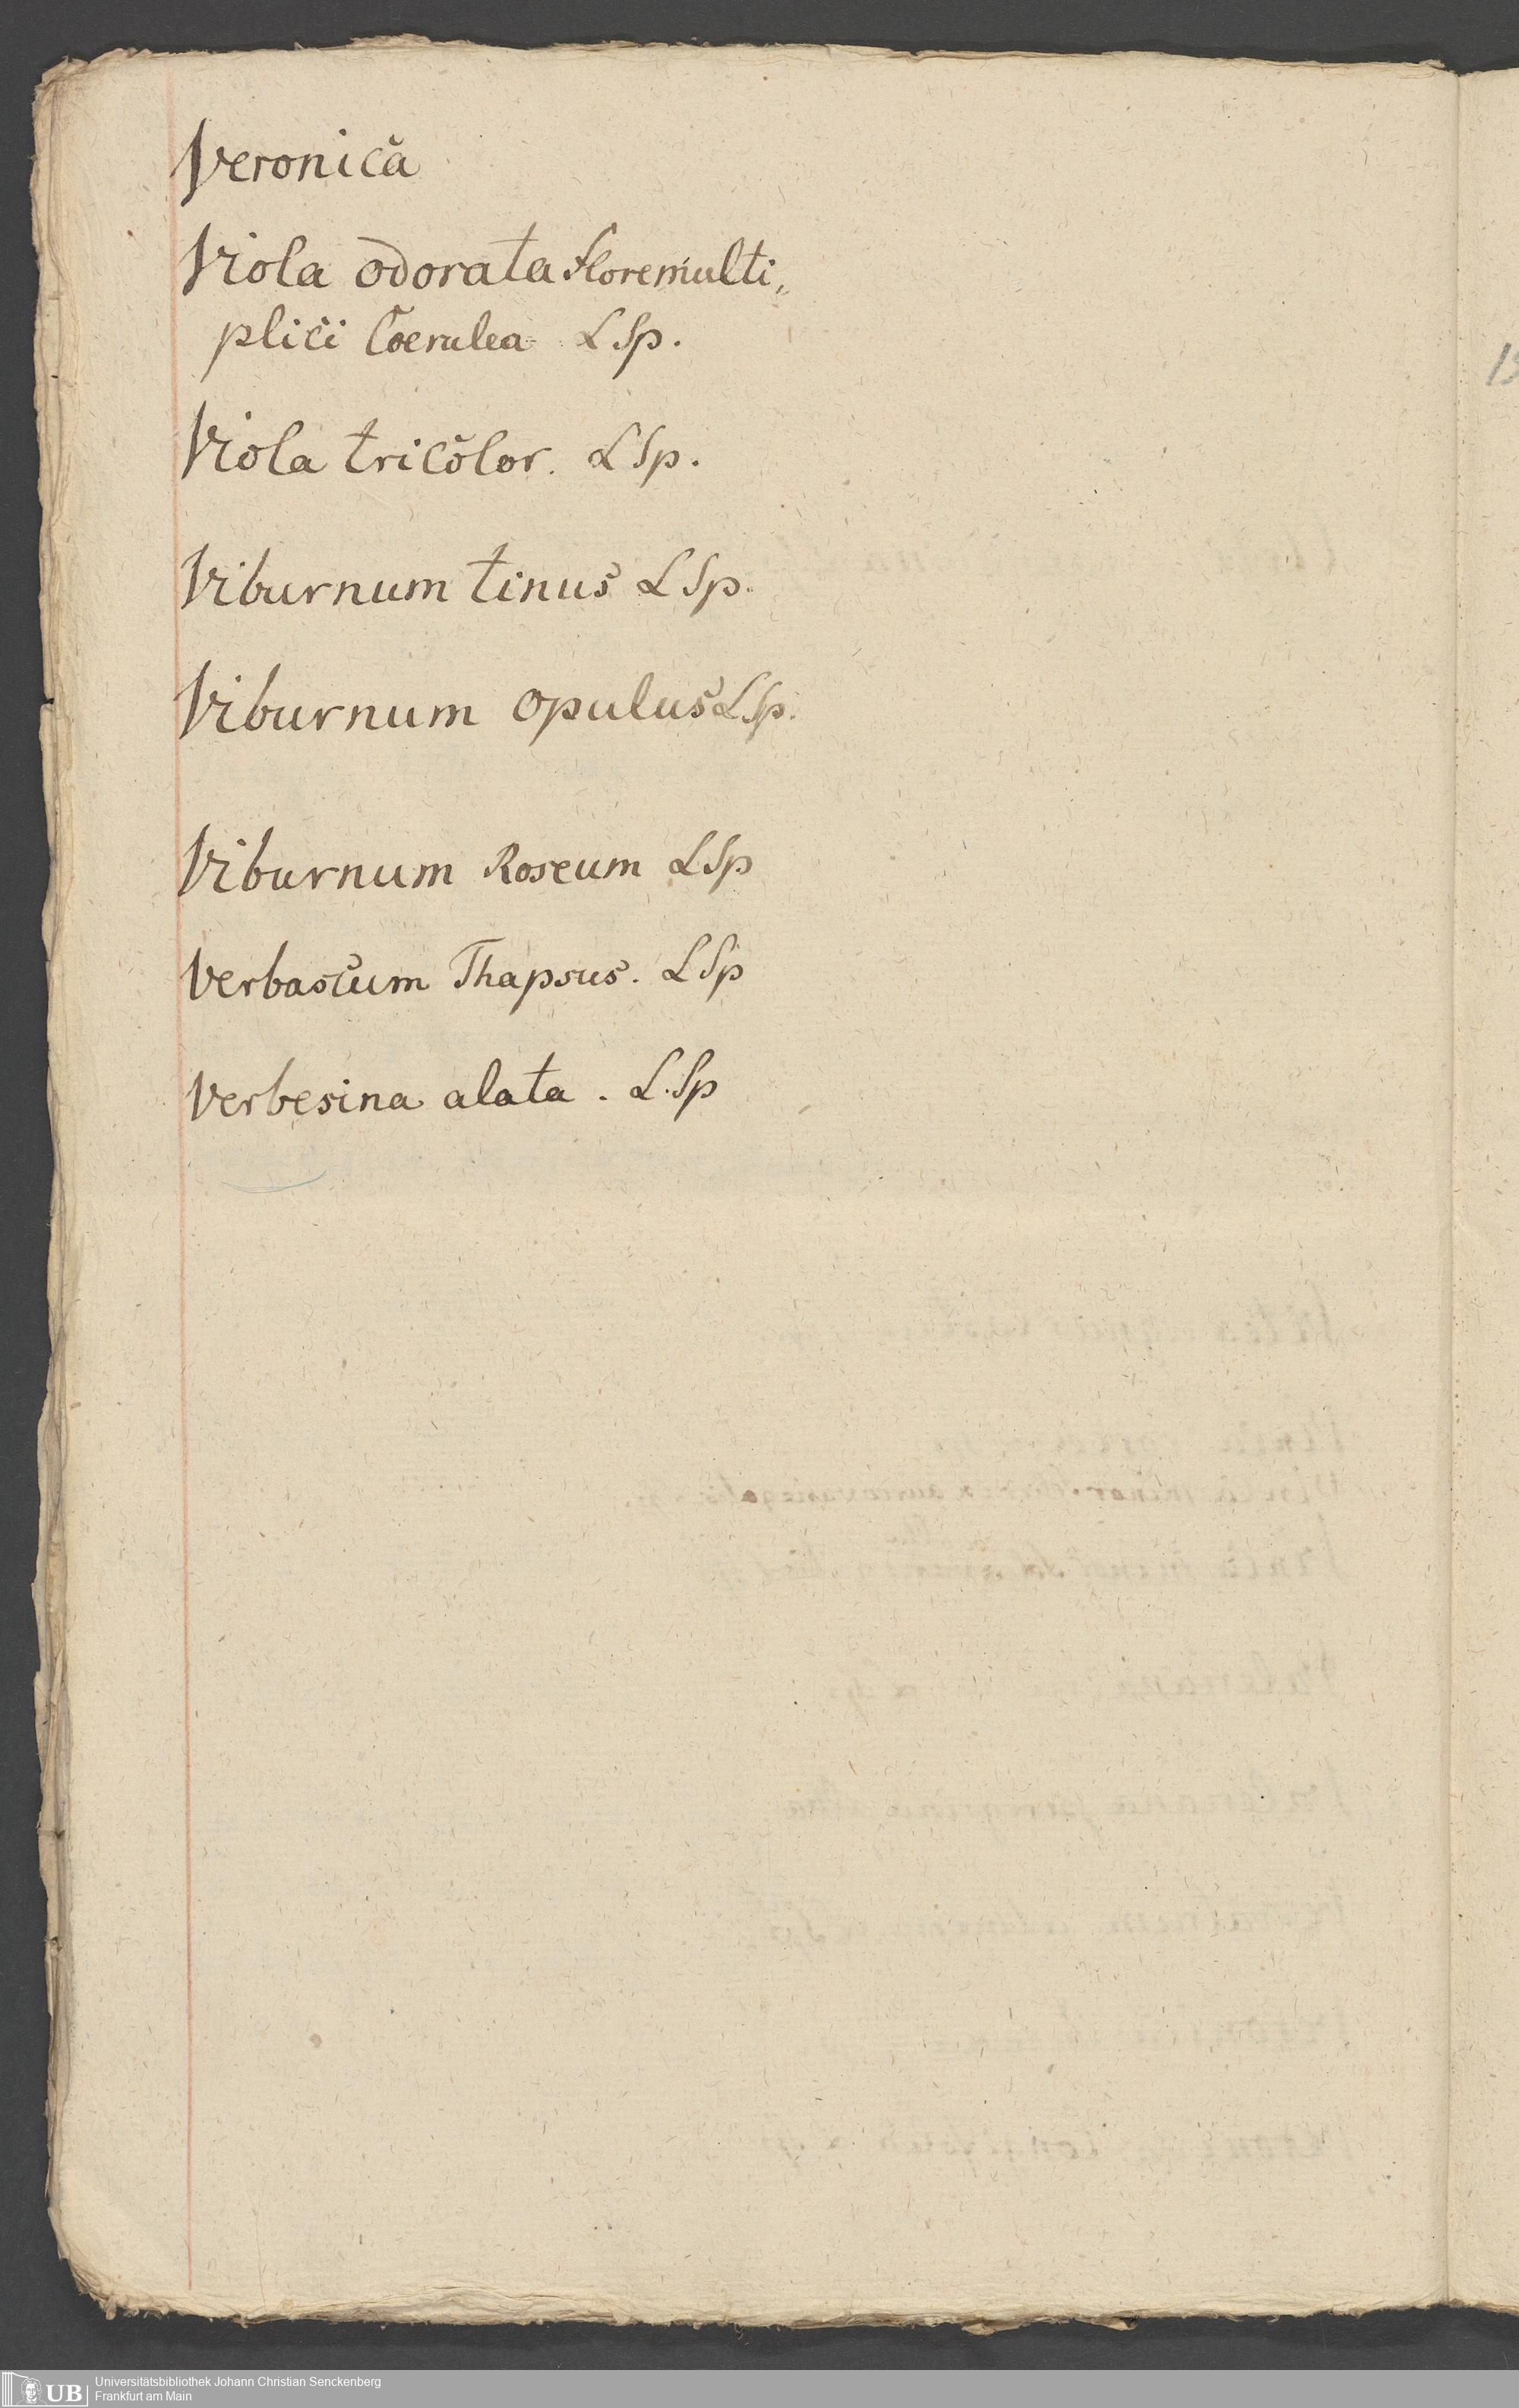 Veronica
Viola odorata Flore multi„
plici Coerulea L Sp.
Viola tricolor. L Sp.
Viburnum tinus L Sp.
Viburnum opulus L Sp.
Viburnum Roseum L Sp
Verbascum Thapsus. L Sp
Verbesina alata. L. Sp
UB
Universitätsbibliothek Johann Christian Senckenberg
Frankfurt am Main